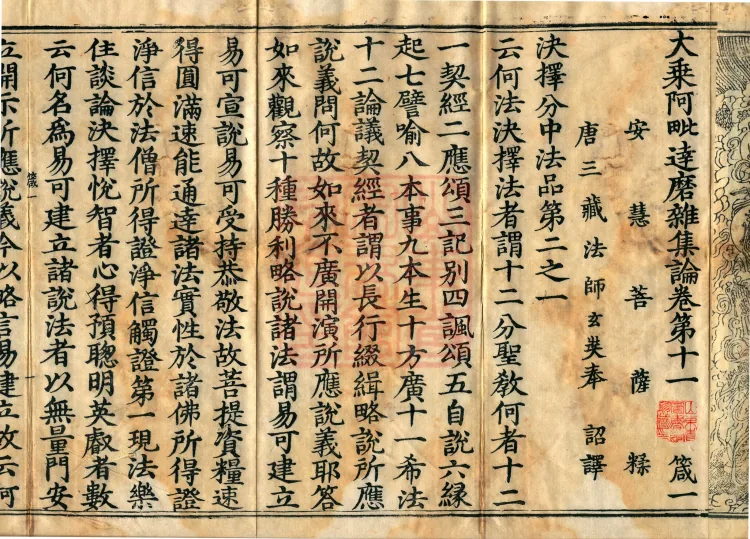 大乘阿毗達磨雜集論卷第十一 箴一
安慧菩薩糅
唐三藏法師玄奘奉 詔譯
決擇分中法品第二之一
云何法決擇法者謂十二分聖教何者十二
一契經二應頌三記別四諷頌五自說六緣
起七譬喻八本事九本生十方廣十 希法
十二論議契經者謂以長行綴緝略說所應
說義問何故如來不廣開演所應說義耶答
如來觀察十種勝利略說諸法謂易可建立
易可宣說易可受持恭敬法故菩提資糧速
得圓滿速能通達諸法實性於諸佛所得證
淨信於法僧所得證淨信觸證第一現法樂
住談論決擇悅智者心得預聰明英叡者數
云何名爲易可建立諸說法者以無量門安
箴一
立開示所應說義今以略言易建立故云何